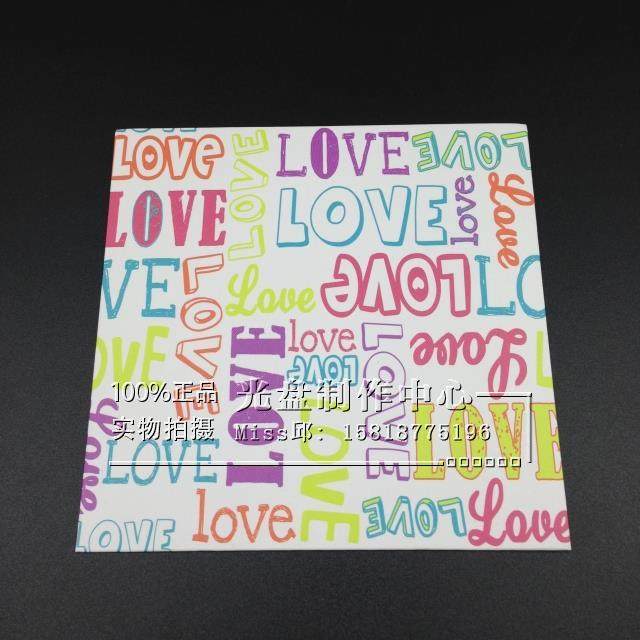 LOVE
LOVE
LOVE
LOVE
LOVE
LOVE
LOVE
love
Love
VE
LOVE
Love
LOVE
LO
LOVE
love
LOVE
LOVE
LOVE
Love
L
100%正品 光盘制作中心
实物拍摄 Miss邱: 15818775196
Love
LOVE
LOVE
LOVE
LOVE
love
LOVE
Love